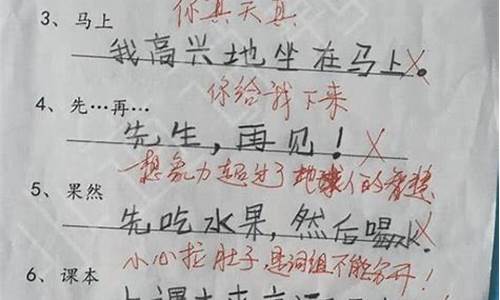 你真天真
3、马上
我高兴地坐在马上。
你给我下来
4、先…再…
先生，再见！
想象力超过了地球人的智慧
5、果然
先吃水果，然后喝水。
小心拉肚子，是词组不能分开！
6、课本